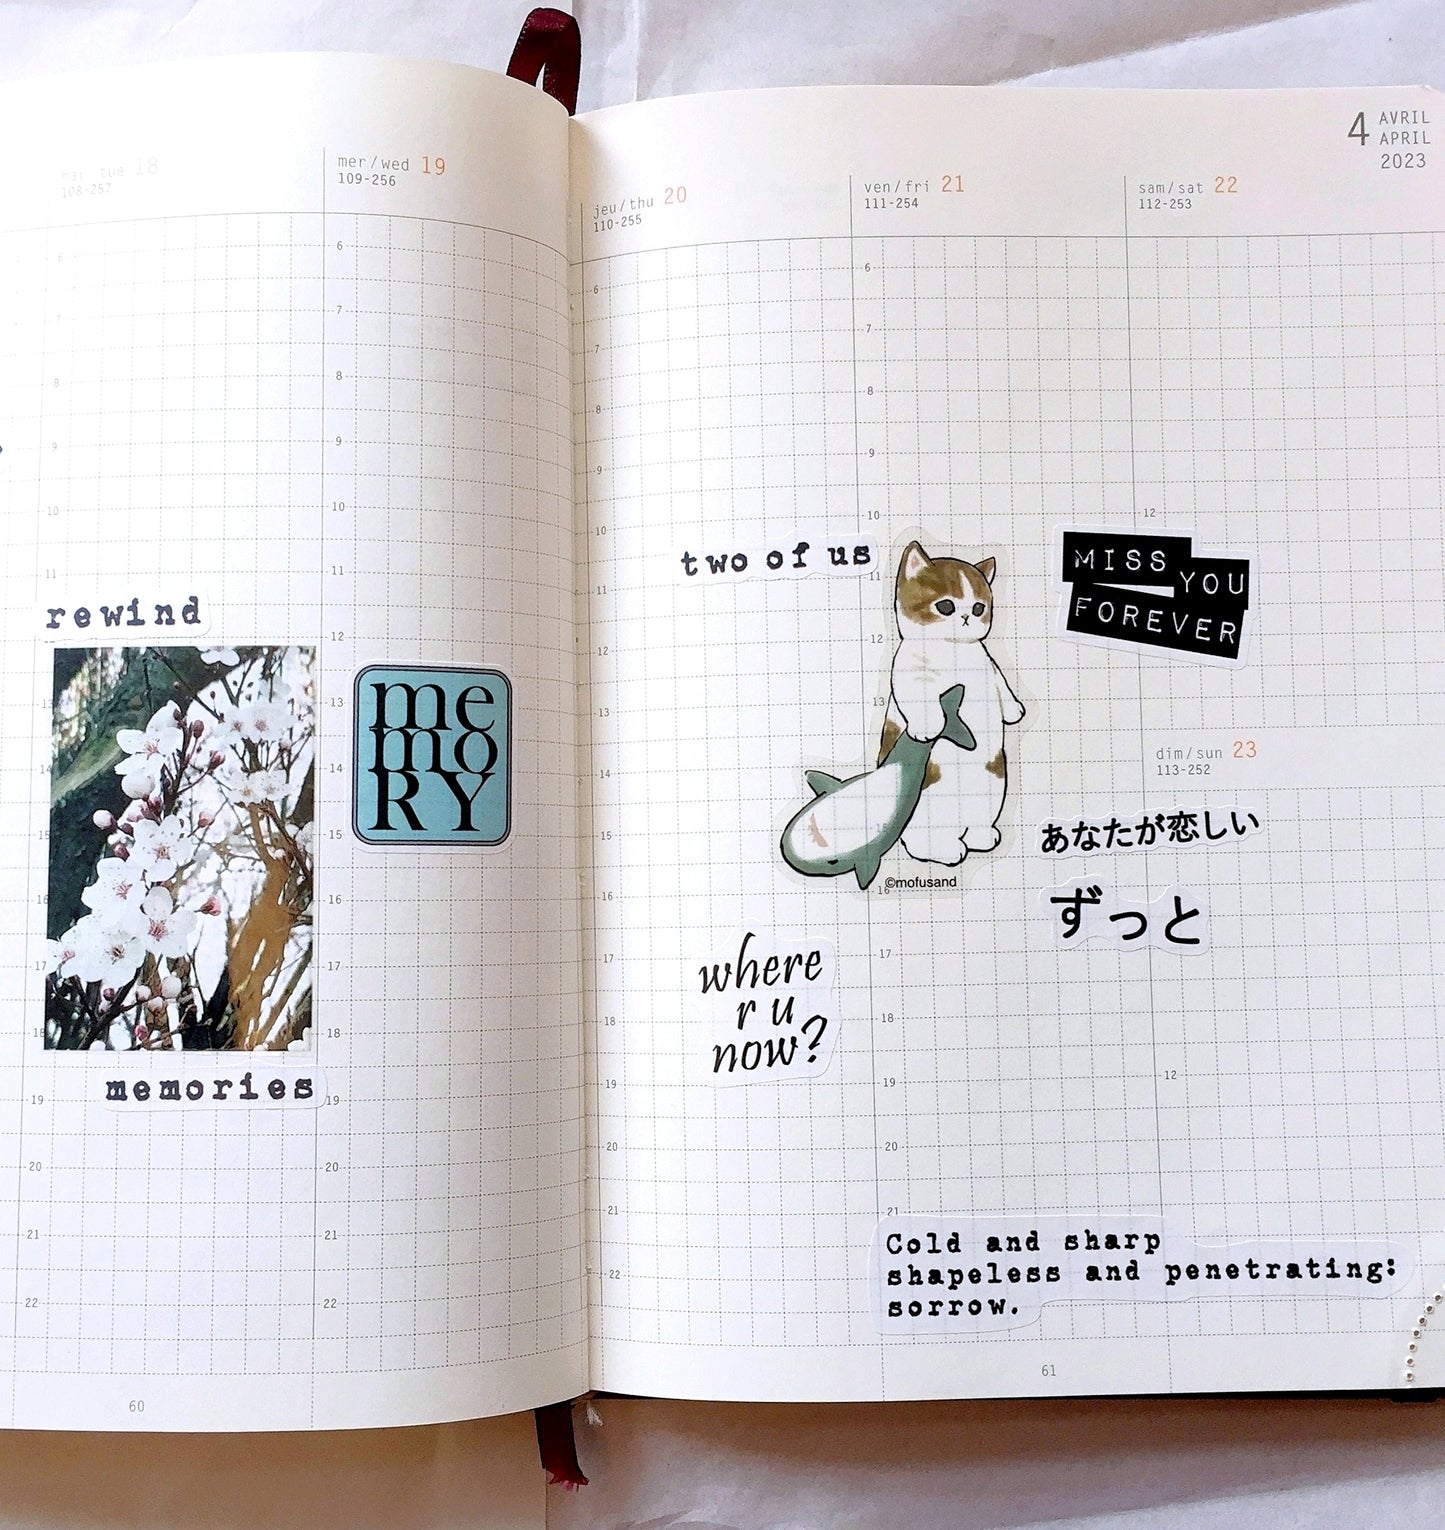 mar/tue 18
108-257
mer/wed 19
109-256
6
7
8
9
10
11
12
13
14
15
16
17
18
19
20
21
22
rewind
memories
me
mo
RY
60
4 AVRIL
APRIL
2023
jeu/thu 20
110-255
ven/fri 21
111-254
sam/sat 22
112-253
6
7
8
9
10
11
12
13
14
15
16
17
18
19
20
21
22
12
two of us
MISS
YOU
FOREVER
©mofusand
dim/sun 23
113-252
あなたが恋しい
ずっと
where
r u
now?
12
Cold and sharp
shapeless and penetrating:
sorrow.
61